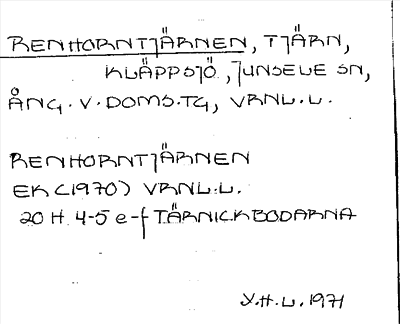 RENHORNTJÄRNEN, TJÄRN,
KLÄPPSJÖ, JUNSELE SN,
ÅNG. V. DOMS. TG, VRNL.L.
RENHORNTJÄRNEN
EK (1970) VRNL.L.
20 H. 4-5 e-f TÄRNICKBODARNA
Y.H.L. 1971